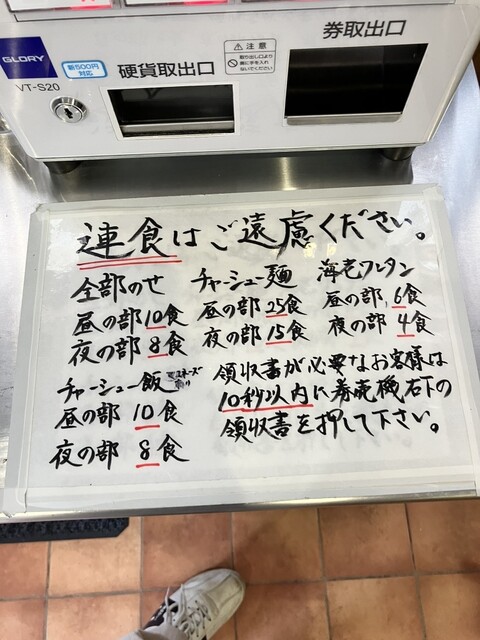 GLORY
VT-S20
新500円
対応
硬貨取出口
注意
取り出し口より
奥に手を入れ
ないでください
券取出口
連食はご遠慮ください。
全部のせ
昼の部10食
夜の部8食
チャーシュー飯
昼の部 10食
夜の部 8食
チャーシュー麺
昼の部 25食
夜の部 15食
海老ワンタン
昼の部 6食
夜の部 4食
領収書が必要なお客様は
10秒以内に券売機右下の
領収書を押して下さい。